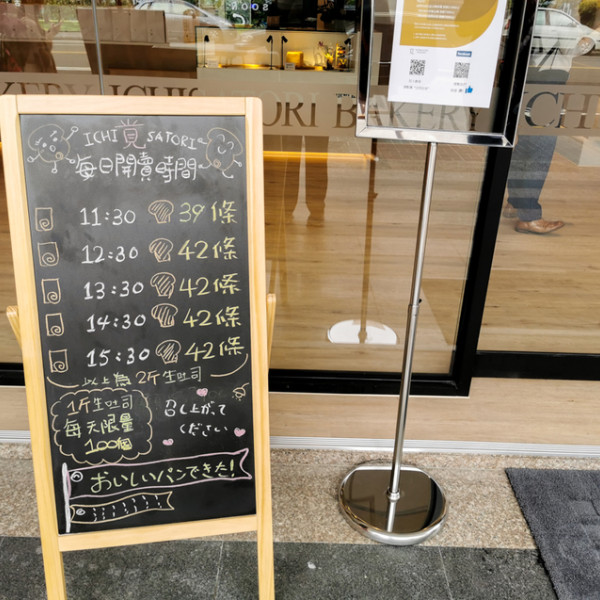 KERY ICHI SATORI BAKERY ICH
ICHI 覓 SATORI
每日開賣時間
11:30 39條
12:30 42條
13:30 42條
14:30 42條
15:30 42條
以上為 2斤生吐司
1斤生吐司
每天限量
100個
召し上がて
ください
おいしいパンできた!